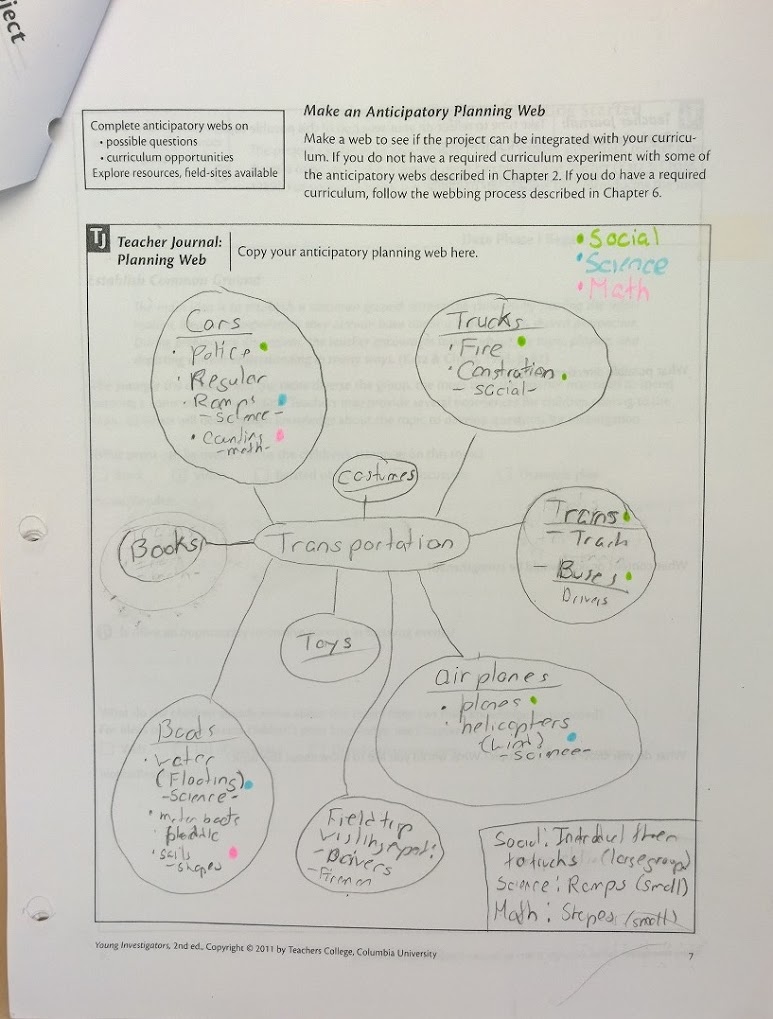 ject
Make an Anticipatory Planning Web
Complete anticipatory webs on
• possible questions
• curriculum opportunities
Explore resources, field-sites available
Make a web to see if the project can be integrated with your curricu-
lum. If you do not have a required curriculum experiment with some of
the anticipatory webs described in Chapter 2. If you do have a required
curriculum, follow the webbing process described in Chapter 6.
TJ Teacher Journal:
Planning Web
Copy your anticipatory planning web here.
• Social
• Science
• Math
Cars
• Police
• Regular
• Ramps
- Science -
• Counting
- math -
Trucks
• Fire
• Constration
- social -
Costumes
Books
Transportation
Trains
- Track
- Buses
Drivers
Toys
airplanes
• planes
• helicopters
- science -
Boats
• water
(Floating)
- Science -
• moter boats
• sails
- shapes
Field trip
- Drivers
- Firemen
Social: Introduce them
to trucks (large group)
Science: Ramps (small)
Math: Shapes (small)
Young Investigators, 2nd ed., Copyright © 2011 by Teachers College, Columbia University
7